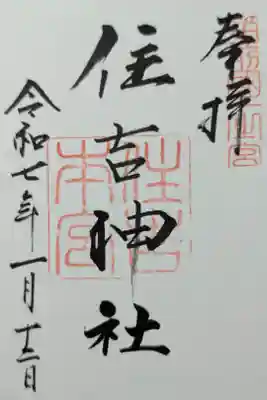 奉拝
住吉神社
住吉
本宮
令和七年一月十二日